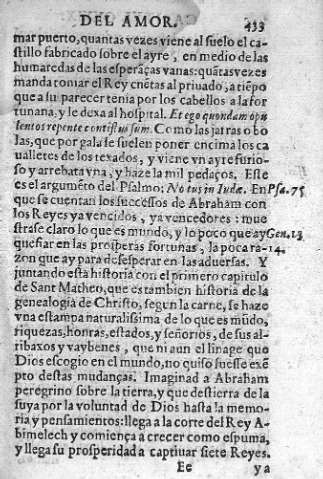 DEL AMOR. 433
mar puerto, quantas vezes viene al suelo el ca-
stillo fabricado sobre el ayre, en medio de las
humaredas de las esperãças vanas: quãtas vezes
manda tomar el Rey cuẽtas al priuado, a tiẽpo
que a su parecer tenia por los cabellos a la for
tunana, y le dexa al hospital. Et ego quondam opu
lentos repente contistus sum. Como las jarras o bo
las, que por gala se suelen poner encima los ca
ualletes de los texados, y viene vn ayre furio-
so y arrebata vna, y haze la mil pedaços. Este
es el argumẽto del Psalmo: Notus in Iudæ. En Psa. 75
que se cuentan los successos de Abraham con
los Reyes ya vencidos, ya vencedores: mue
strase claro lo que es mundo, y lo poco que ay Gen. 13
que fiar en las prosperas fortunas, la poca ra- 14.
zon que ay para desesperar en las aduersas. Y
juntando esta historia con el primero capitulo
de Sant Matheo, que es tambien historia de la
genealogia de Christo, segun la carne, se haze
vna estampa naturalissima de lo que es mũdo,
riquezas, honras, estados, y señorios, de sus al-
tibaxos y vaybenes, que ni aun el linage que
Dios escogio en el mundo, no quiso fuesse exẽ
pto destas mudanças. Imaginad a Abraham
peregrino sobre la tierra, y que destierra de la
suya por la voluntad de Dios hasta la memo-
ria y pensamientos: llega a la corte del Rey A-
bimelech y comiença a crecer como espuma,
y llega su prosperidad a captiuar siete Reyes.
Ee ya